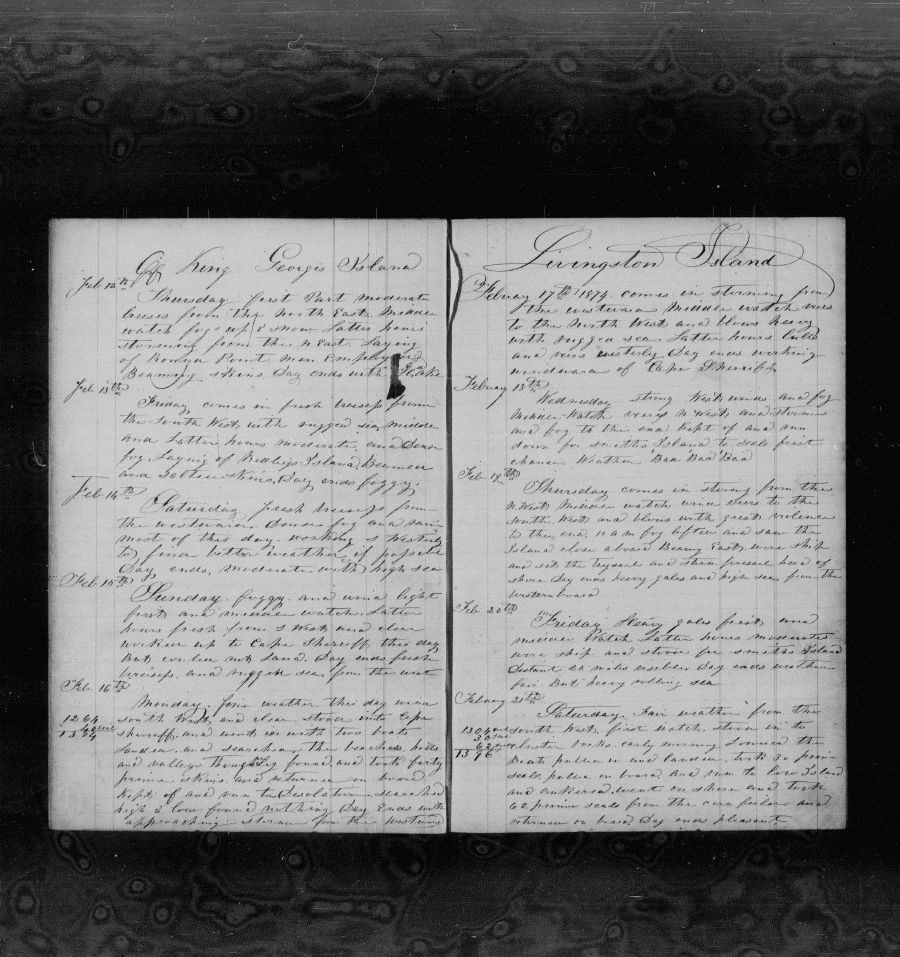 Off King Georges Island
Feb 12th
Thursday first Part moderate
breeses from the North East Middle
watch fog up & snow Latter hours
storming from the N East Laying
of Point men Employed
Beaming skins Day ends with
Feb 13th
Friday comes in fresh breeses from
the South West with rugged sea middle
and Latter hours moderate and Dense
fog. Laying of Island Beamed
and Salted skins, Day ends foggy.
Feb 14th
Saturday fresh breeses from
the westward. Dense fog and rain
most of this day. working S Westerly
to find better weather if possible
Day ends, moderate with high sea
Feb 15th
Sunday. foggy. and wind light
first and middle watch Latter
hours fresh from S West and clear
worked up to Cape Sheriff this day
But could not Land. Day ends fresh
breeses. and rugged sea from the west
Feb 16th
Monday. fine weather this day wind
south West, and clear, stood into Cape
sheriff, and went in with two boats
Landed. and searched, the beaches hills
and valleys found, and took forty
prime skins, and returned on board
Kept of and run to Desolation. searched
high & low found nothing Day Ends with
approaching storm from the westward
1264
40
1304
Livingston Island
February 17th 1874. comes in storming from
the westward Middle watch veers
to the North West and blows heavy
with rugged sea Latter hours lulls
and veers westerly Day ends working
windward of Cape Sherriff
February 18th
Wednesday strong West winds and fog
Middle Watch veers N West, and storms
and fog to the end Kept of and run
down for smiths Island to seek first
chance Weather Bad Bad Bad
Feb 19th
Thursday comes in strong from the
N West Middle watch wind veers to the
South West and blows with great violence
to the end. 10 a m fog lifted and saw the
Island close aboard Bearing East, wore ship
and set the trysail and storm head of
shore Day ends heavy gales and high sea from the
western board
Feb 20th
Friday Heavy gales first, and
middle Watch Latter hours moderates
wore ship and stood for smiths Island
distant 25 miles visible Day ends weather
fair But heavy rolling sea
February 21st
Saturday. Fair weather from the
south West, first watch, stood in to
early morning Lowered the
Boats pulled in and landed. took 30 prime
seals, pulled on board and run to Low Island
and ankered. went on shore and took
62 prime seals from the and
returned on board Day ends pleasant.
1304
30
62
1396